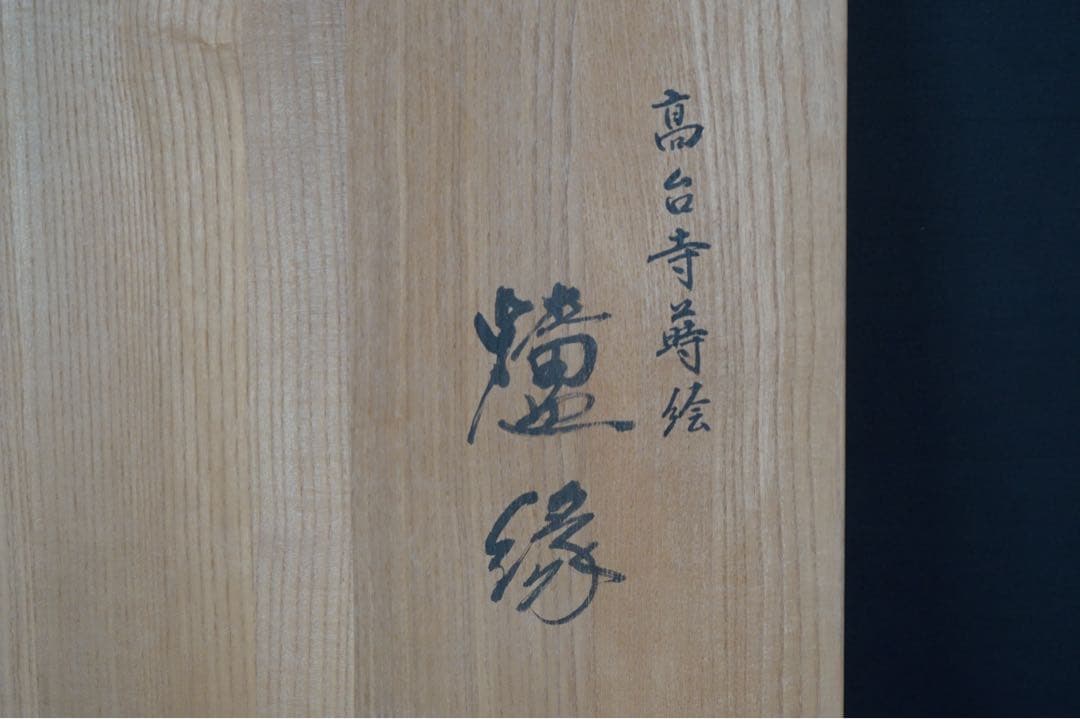 高台寺蒔絵
爐縁